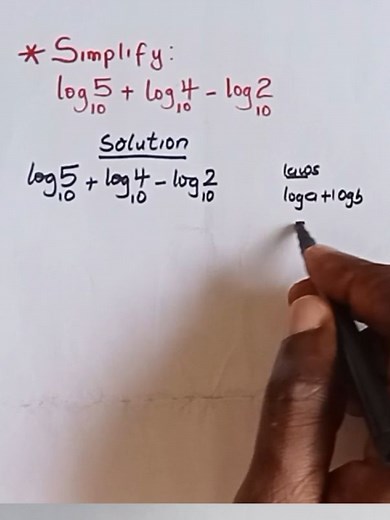 * Simplify:
log₁₀5 + log₁₀4 - log₁₀2
Solution
log₁₀5 + log₁₀4 - log₁₀2
laws
loga + logb